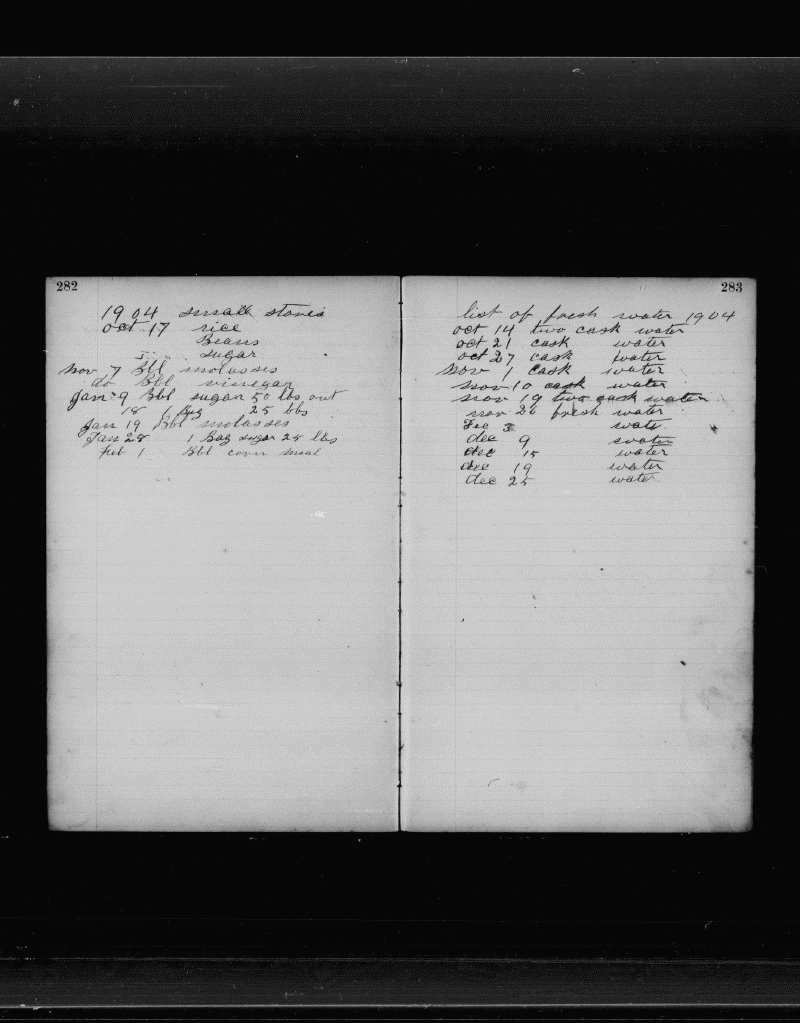 282
1904 small stores
oct 17 rice
Beans
sugar
nov 7 Bbl molasses
do Bbl vinegar
Jan 9 Bbl sugar 50 lbs out
18 1 Bag 25 lbs
Jan 19 Bbl molasses
Jan 28 1 Bag sugar 25 lbs
feb 1 Bbl corn meal
283
list of fresh water 1904
oct 14 two cask water
oct 21 cask water
oct 27 cask water
nov 1 cask water
nov 10 cask water
nov 19 two cask water
nov 26 fresh water
Dec 3 wate
dec 9 water
dec 15 water
dec 19 water
dec 25 wate